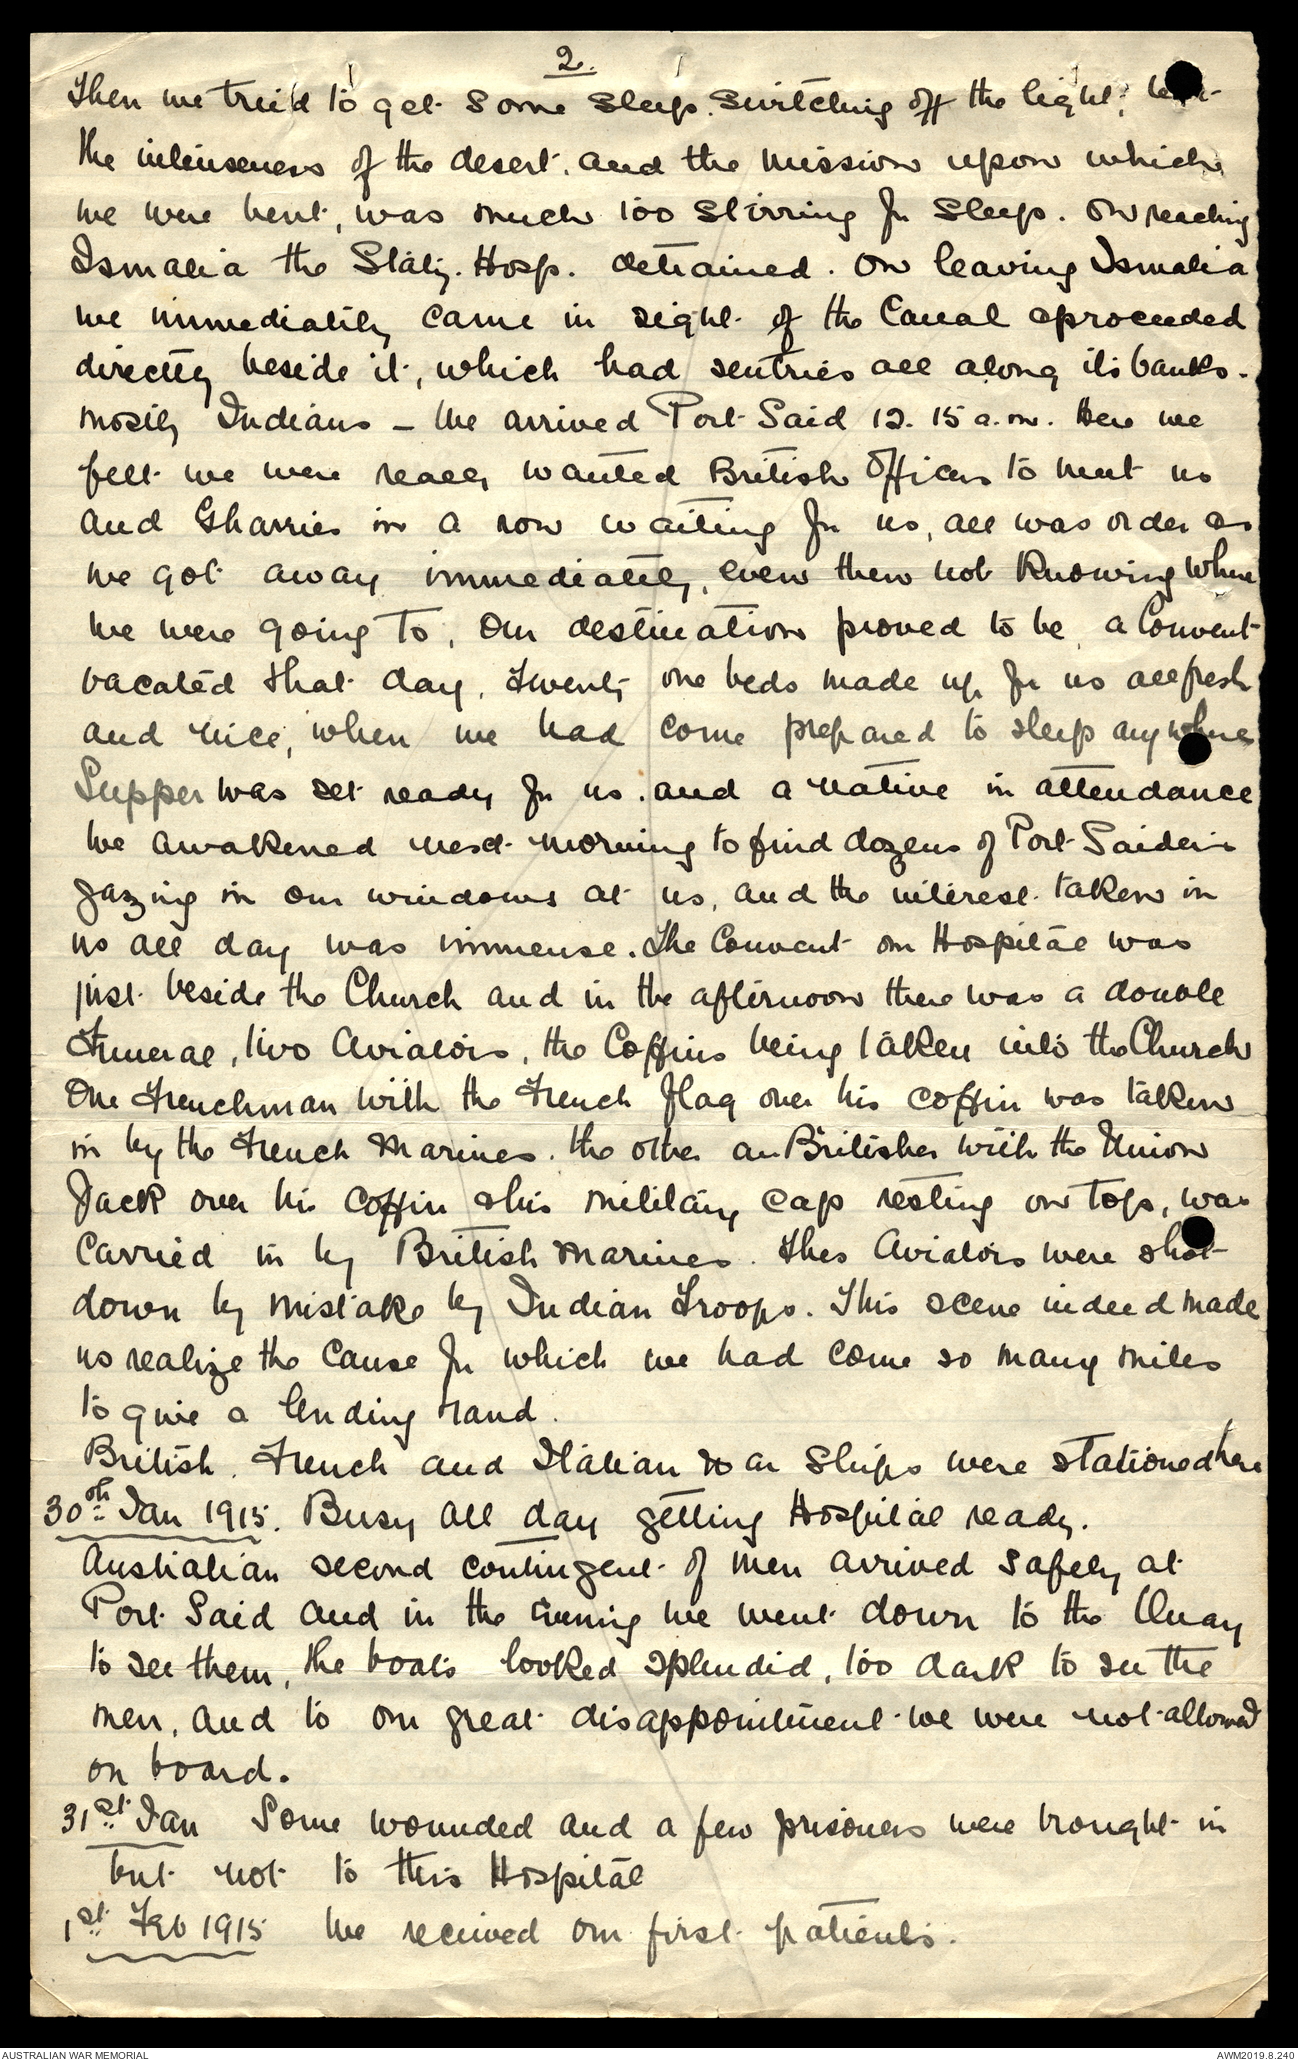 2.
Then we tried to get some sleep. switching off the light, but
the intenseness of the desert. and the mission upon which
we were bent, was much too stirring for sleep. On reaching
Ismalia the Staty. Hosp. detrained. On leaving Ismalia
we immediately came in sight of the Canal & proceeded
directly beside it, which had sentries all along its banks.
mostly Indians – We arrived Port Said 12.15 a.m. Here we
felt we were really wanted British Officers to meet us
and Gharries in a row waiting for us, all was order as
we got away immediately, even then not knowing where
we were going to, Our destination proved to be a Convent
vacated that day, Twenty one beds made up for us all fresh
and nice, when we had come prepared to sleep anywhere
Supper was set ready for us. and a native in attendance
We awakened next morning to find dozens of Port Saiders
gazing in our windows at us, and the interest taken in
us all day was immense. The Convent our Hospital was
just beside the Church and in the afternoon there was a double
Funeral, two Aviators, the Coffins being taken into the Church
One Frenchman with the French flag over his coffin was taken
in by the French Marines. the other an Britisher with the Union
Jack over his coffin & his military cap resting on top, was
carried in by British Marines. Thes Aviators were shot
down by mistake by Indian Troops. This scene indeed made
us realize the Cause for which we had come so many miles
to give a lending hand.
British. French and Italian War Ships were stationed here
30th Jan 1915. Busy all day getting Hospital ready.
Australian second contingent of men arrived safely at
Port Said and in the evening we went down to the Quay
to see them, the boats looked splendid, too dark to see the
men, and to our great disappointment we were not allowed
on board.
31st Jan Some wounded and a few prisoners were brought in
but not to this Hospital
1st Feb 1915 We received our first patients.
AUSTRALIAN WAR MEMORIAL
AWM2019.8.240